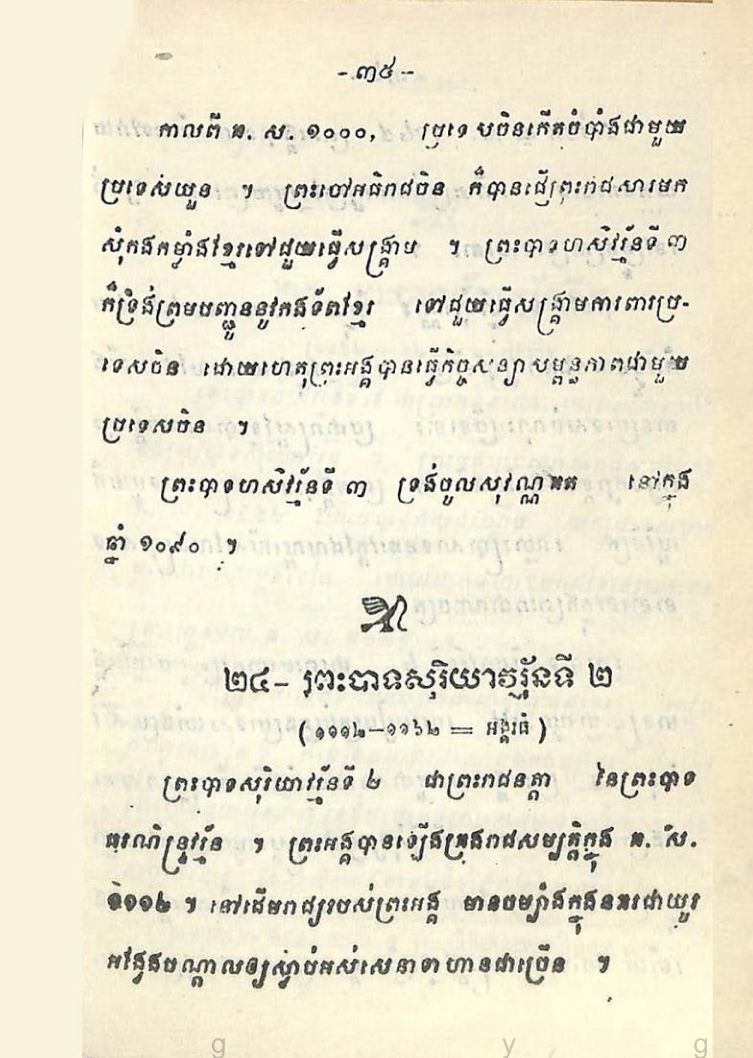 - ៣៥ -
កាលពី គ. ស. ១០០០, ប្រទេសចិនកើតចំបាំងជាមួយ
ប្រទេសយួន ។ ព្រះចៅអធិរាជចិន ក៏បានផ្ញើព្រះរាជសារមក
សុំកងកម្លាំងខ្មែរទៅជួយធ្វើសង្គ្រាម ។ ព្រះបាទហសិវរ្ម័នទី ៣
ក៏ទ្រង់ព្រមបញ្ជូននូវកងទ័តខ្មែរ ទៅជួយធ្វើសង្គ្រាមការពារប្រ-
ទេសចិន ដោយហេតុព្រះអង្គបានធ្វើកិច្ចសន្យាសម្ពន្ធភាពជាមួយ
ប្រទេសចិន ។
ព្រះបាទហសិវរ្ម័នទី ៣ ទ្រង់ចូលសុវណ្ណគត នៅក្នុង
ឆ្នាំ ១០៩០ ។
២៤- ព្រះបាទសុរិយាវរ្ម័នទី ២
( ១១១២-១១៦២ = អង្គរធំ )
ព្រះបាទសុរិយាវរ្ម័នទី ២ ជាព្រះរាជនត្តា នៃព្រះបាទ
ធរណិន្ទ្រវរ្ម័ន ។ ព្រះអង្គបានឡើងគ្រងរាជសម្បត្តិក្នុង គ. ស.
១១១២ ។ នៅដើមរាជ្យរបស់ព្រះអង្គ មានចម្បាំងក្នុងនគរជាយូរ
អង្វែងបណ្តាលឲ្យស្លាប់អស់សេនាទាហានជាច្រើន ។
g y g